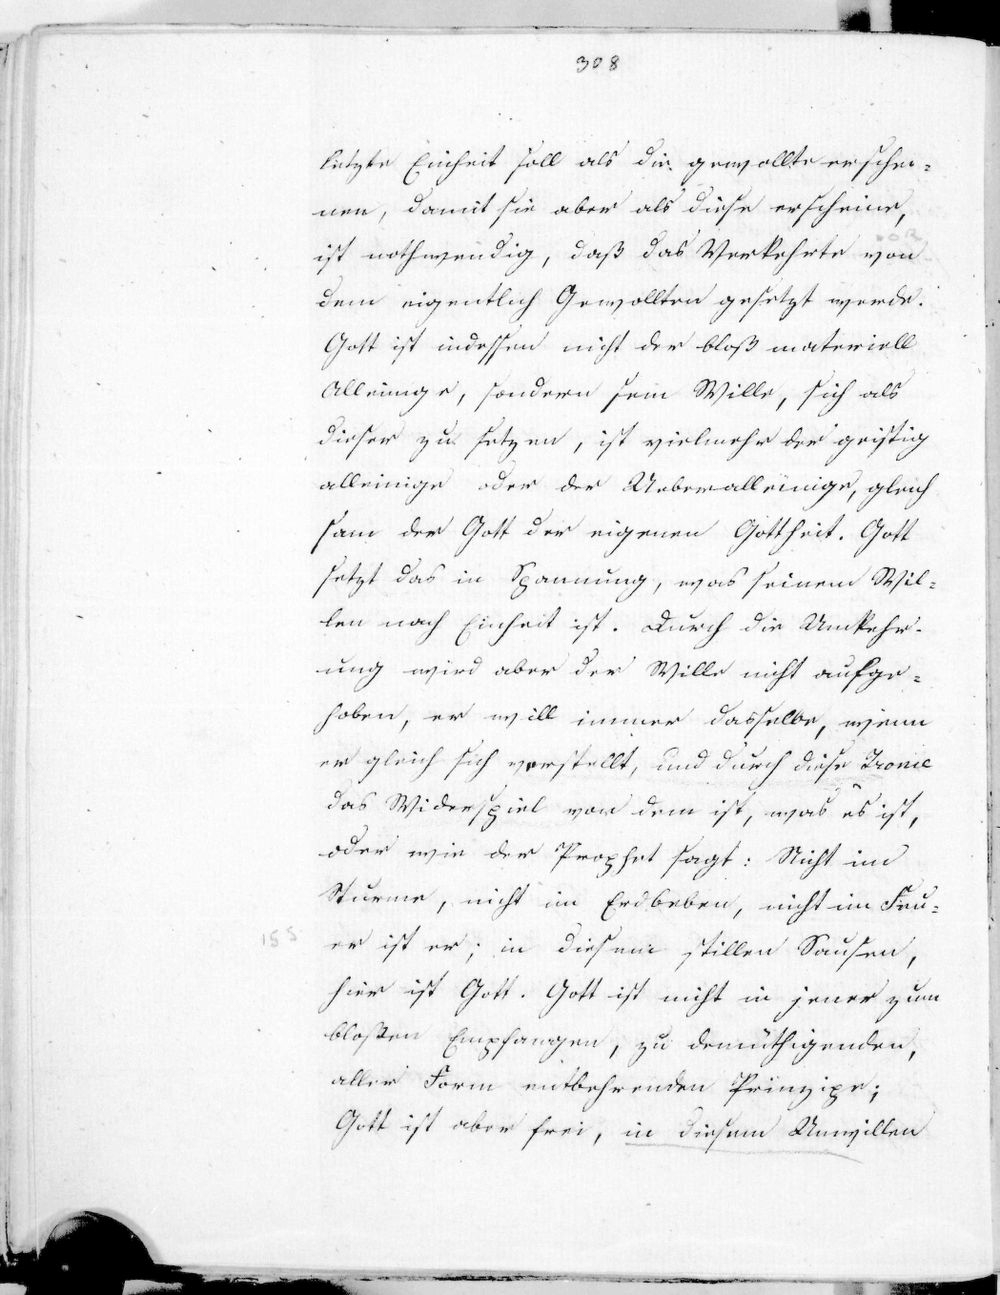 308
letzte Einheit soll als die gewollte erschei=
nen, damit sie aber als diese erscheine,
ist nothwendig, daß das Verkehrte von
dem eigentlich Gewollten gesetzt werde.
Gott ist indessen nicht der bloß materiell
Alleinige, sondern sein Wille, sich als
dieser zu setzen, ist vielmehr der geistig
alleinige oder der Ueberalleinige, gleich
sam der Gott der eigenen Gottheit. Gott
setzt das in Spannung, was seinem Wil=
len nach Einheit ist. Durch die Umkehr-
ung wird aber der Wille nicht aufge=
hoben, er will immer dasselbe, wenn
er gleich sich verstellt, und durch diese Ironie
das Widerspiel von dem ist, was es ist,
oder wie der Prophet sagt: Nicht im
Sturme, nicht im Erdbeben, nicht im Feu=
155
er ist er; in diesem stillen Sausen,
hier ist Gott. Gott ist nicht in jener zum
bloßen Empfangen, zu demüthigenden,
aller Form entbehrenden Prinzipe;
Gott ist aber frei, in diesem Unwillen